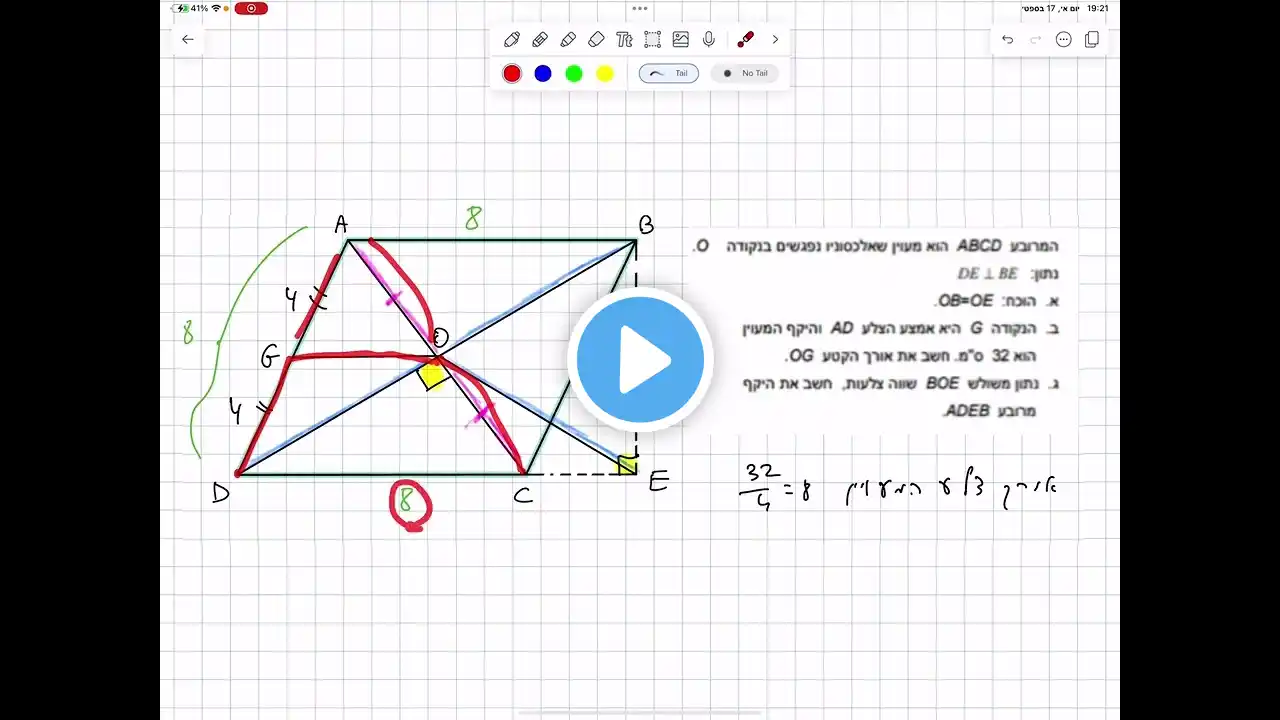 41%
19:21 יום א׳, 17 בספטי
Tt
Tail
No Tail
A
8
B
4
O
8
G
4
D
8
C
E
המרובע ABCD הוא מעוין שאלכסוניו נפגשים בנקודה O.
נתון: DE ⊥ BE
א. הוכח: OB=OE.
ב. הנקודה G היא אמצע הצלע AD והיקף המעוין
הוא 32 ס"מ. חשב את אורך הקטע OG.
ג. נתון משולש BOE שווה צלעות, חשב את היקף
מרובע ADEB.
אורך צלע המעוין 32/4 = 8